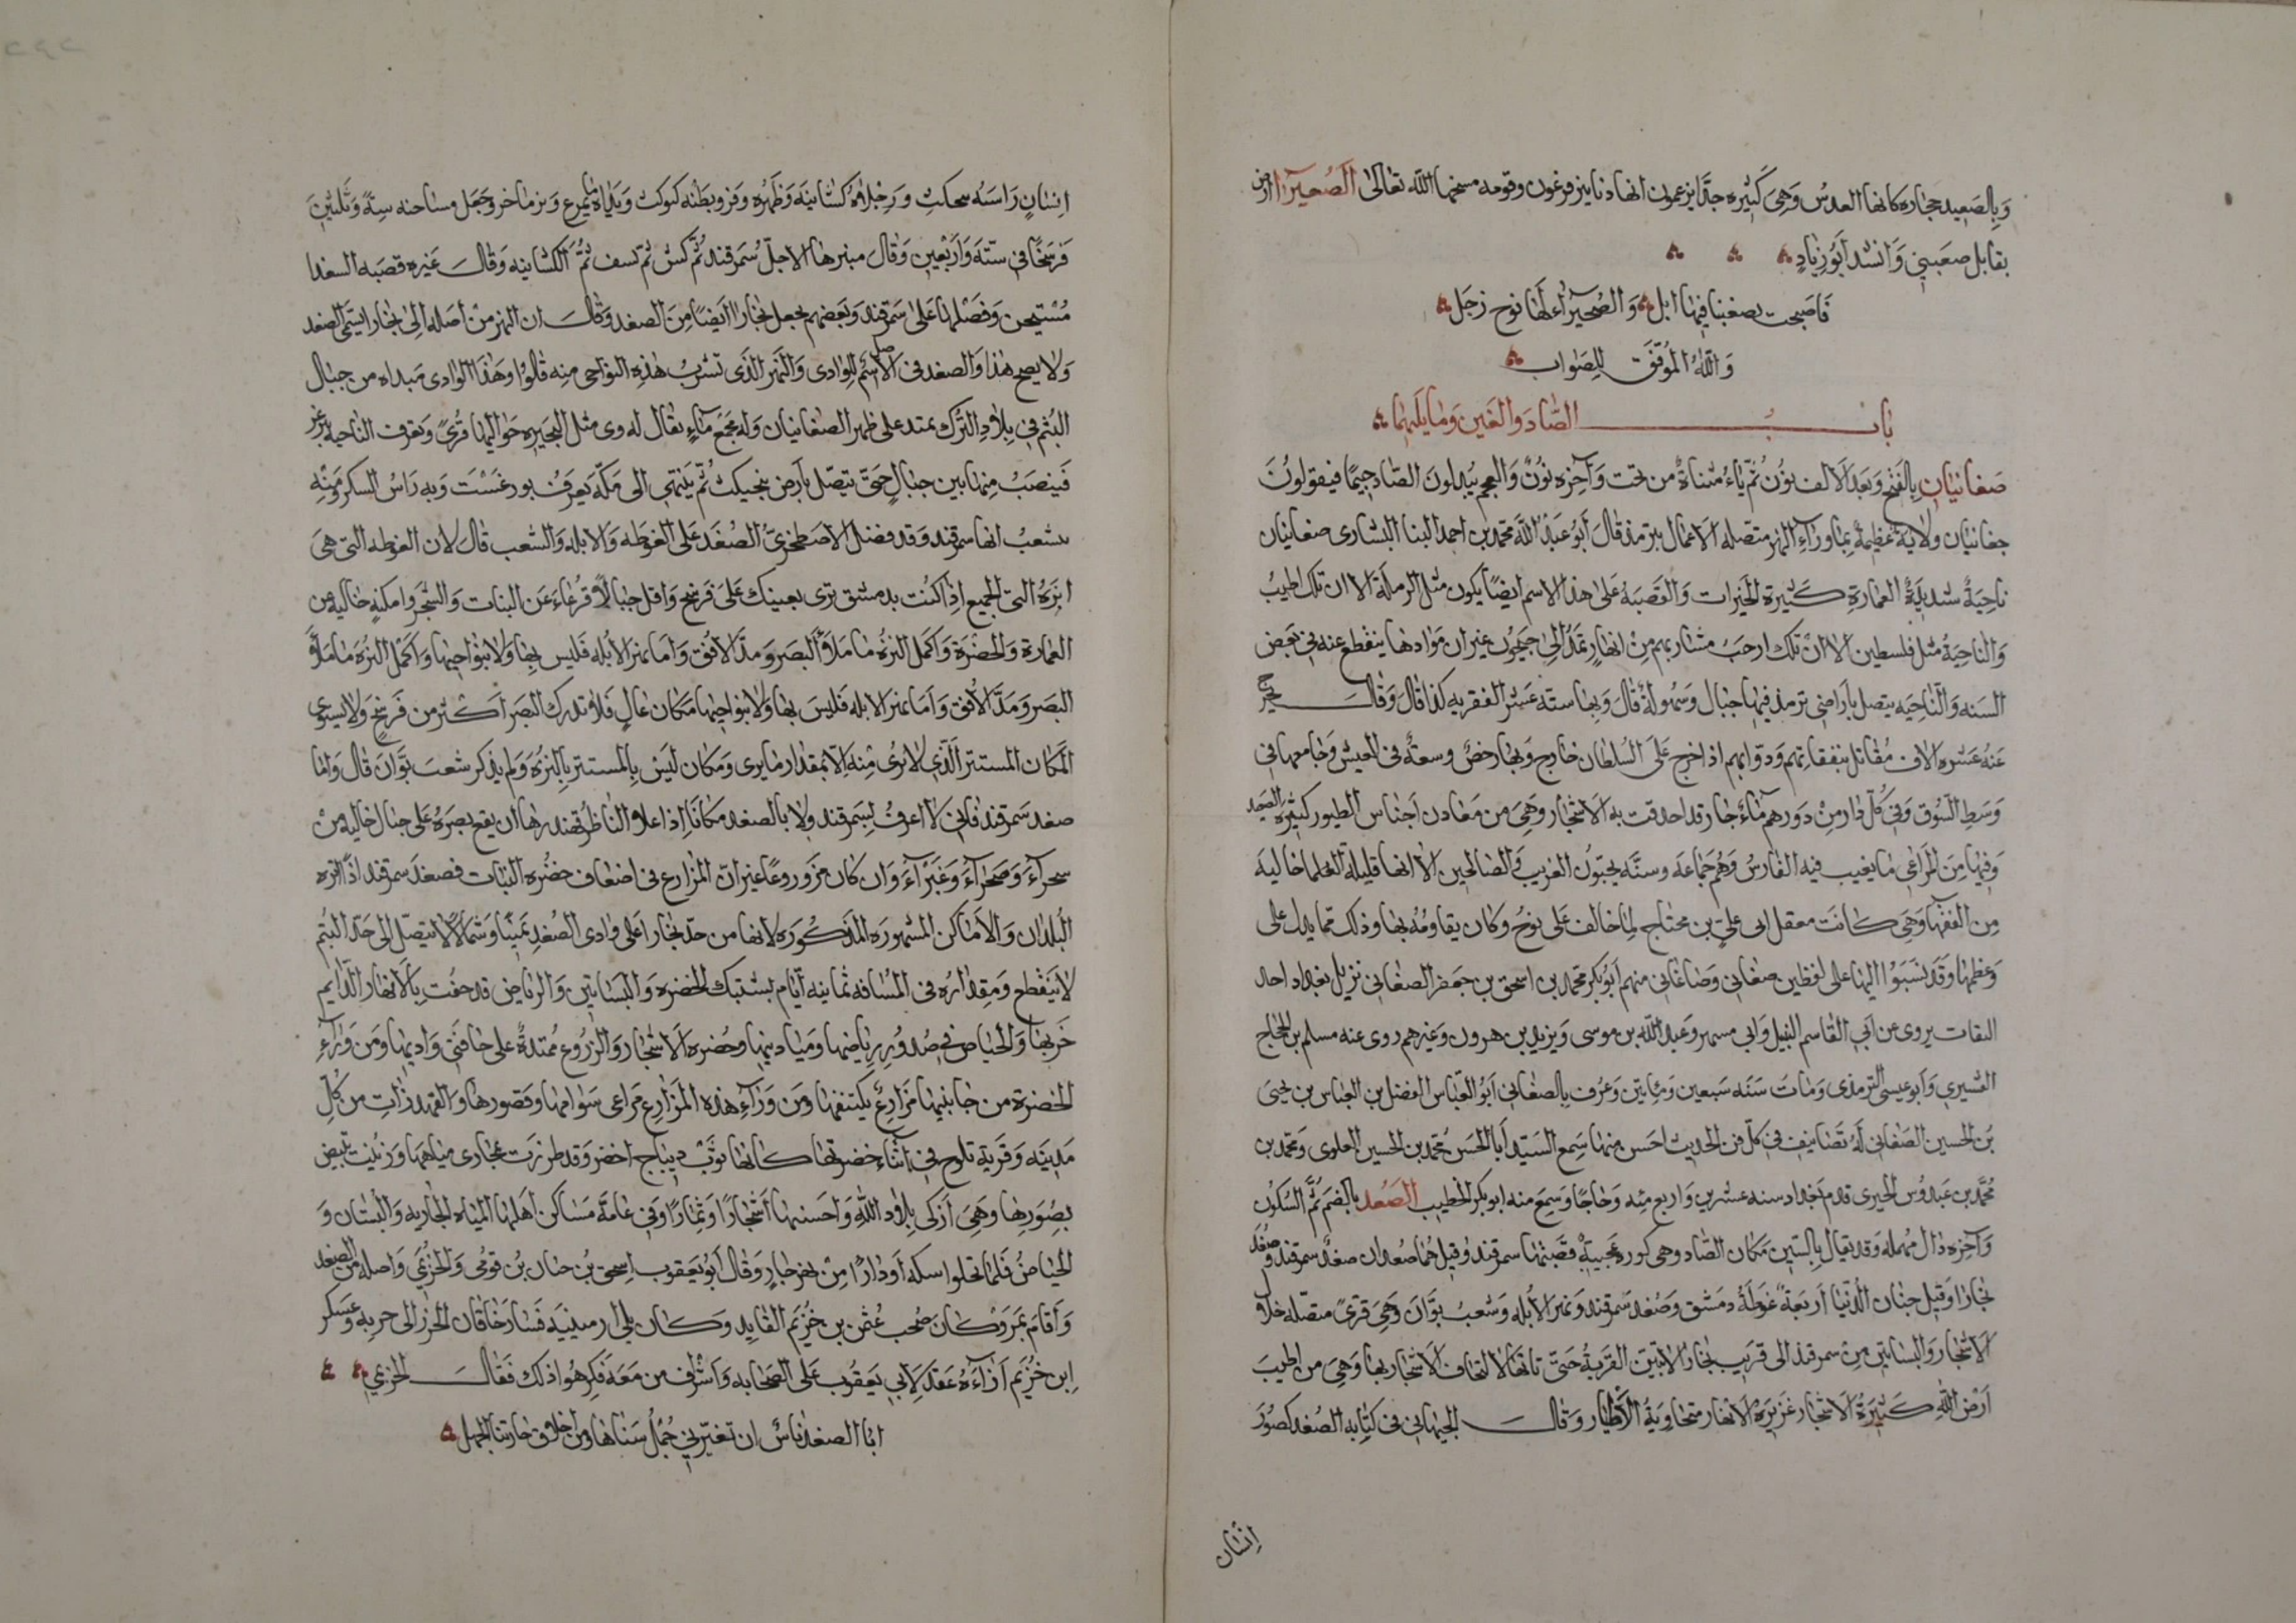 وبالصعيد حجاره كانها العدس وهى كثيره جدا يزعمون انها دنانير فرعون وقومه مسخها الله تعالى الصعيرآء ارض
بقابل صعبنى وانشد ابو زياد
فاصبحت بصعبنا فيها ابل والصعيرآء لها نوح زجل
والله الموفق للصواب
باب الصاد والغين وما يليهما
صغانيان بالفتح وبعد الالف نون ثم ياء مثناة من تحت وآخره نون والعجم يبدلون الصاد جيما فيقولون
جغانيان ولاية عظيمة بما ورآء النهر متصله الاعمال بترمذ قال ابو عبد الله محمد بن احمد البنا البشارى صغانيان
ناحية شديدة العمارة كثيرة الخيرات والقصبه على هذا الاسم ايضا يكون مثل الرملة الا ان تلك اطيب
والناحية مثل فلسطين الا ان تلك ارحب مشاربهم من انهار تمد الى جيحون غير ان موادها ينقطع عنه فى بعض
السنه والناحيه يتصل باراضى ترمذ فيها جبال وسهولة قال وبها ستة عشر الف قريه كذا قال وقال يخرج
عنه عشره الاف مقاتل بنفقاتهم ودوابهم اذا خرج على السلطان خارج وبها رخص وسعة فى العيش وجامعها فى
وسط السوق وفى كل دار من دورهم مآء جار قد احدقت به الاشجار وهى من معادن اجناس الطيور كثيرة الصيد
وفيها من المراعى ما يغيب فيه الفارس وهم جماعة وسنه يحبون الغريب والصالحين الا انها قليلة العلما خاليه
من الفقها وهى كانت معقل ابى على بن محتاج لما خالف على نوح وكان يقاومه بها وذلك مما يدل على
وعظمها وقد نسبوا اليها على لفظين صغانى وصاغانى منهم ابو بكر محمد بن اسحق بن جعفر الصغانى نزيل بغداد احد
الثقات يروى عن ابى القاسم النبيل وابى مسهر وعبد الله بن موسى ويزيد بن هرون وغيرهم روى عنه مسلم بن الحجاج
القشيرى وابو عيسى الترمذى ومات سنه سبعين ومايتين وعرف بالصغانى ابو العباس الفضل بن العباس بن يحيى
بن الحسين الصغانى له تصانيف فى كل فن الحديث احسن منها سمع السيد ابا الحسن محمد بن الحسين العلوى ومحمد بن
محمد بن عبدوس الحيرى قدم بغداد سنه عشرين واربع مئه وحاجا وسمع منه ابو بكر الخطيب الصغد بالضم ثم السكون
وآخره دال مهمله وقد يقال بالسين مكان الصاد وهى كوره عجيبة قصبتها سمرقند وقيل هما صغدان صغد سمرقند وصغد
بخارا وقيل جنان الدنيا اربعة غوطة دمشق وصغد سمرقند ونهر الابله وشعب بوان وهى قرى متصله خلال
الاشجار والبساتين من سمرقند الى قريب بخارا لا تبين القرية حتى تاتها لالتحاف الاشجار بها وهى من اطيب
ارض الله كثيرة الاشجار غزيرة الانهار متجاوبة الاطيار وقال الجيهانى فى كتابه الصغد كصور
انسان
انسان راسه بنجكث ورجلاه كشانيه وظهره وفر وبطنه كبوكث ويداه مايمرغ وبزماخر وجعل مساحته ستة وثلثين
فرسخا فى ستة واربعين وقال منبرها الاجل سمرقند ثم كش ثم نسف ثم الكشانيه وقال غيره قصبه السغد
وفضلها على سمرقند وبعضهم يجعل بخارا ايضا من الصغد وقال ان النهر من اصله الى بخارا يسمى الصغد
ولا يصح هذا والصغد فى الاصل اسم للوادى والنهر الذى تشرب هذه النواحى منه قالوا وهذا الوادى مبداه من جبال
البتم فى بلاد الترك يمتد على ظهر الصغانيان وله مجمع مآء يقال له وى مثل البحيره حواليها قرى وتعرف الناحيه ببرغر
فينصب منها بين جبال حتى يتصل بارض بنجيكث ثم ينتهى الى مكان يعرف بورغست وبه راس السكر ومنه
تشعب انهار سمرقند وقد فضل الاصطخرى الصغد على الغوطه والابله والشعب قال لان الغوطه التى هى
انزه التى الجميع اذا كنت بدمشق ترى بعينك على فرسخ واقل جبالا قرعاء عن النبات والشجر وامكنه خاليه من
العمارة والخضرة واكمل النزه ما ملأ البصر ومد الافق واما نهر الابله فليس بها ولا بنواحيها واكمل النزه ما ملأ
البصر ومد الافق واما نهر الابله فليس بها ولا بنواحيها مكان عال فلا تدرك البصر اكثر من فرسخ ولا يستوى
المكان المستتر الذى لا يرى منه الا بمقدار ما يرى ومكان ليس بالمستتر بالنزه ولم يذكر شعب بوان قال واما
صغد سمرقند فانى لا اعرف بسمرقند ولا بالصغد مكانا اذا علا الناظر قهندزها ان يقع بصره على جبال خاليه من
شجرآء وصحرآء وغبرآء وان كان مزروعا غير ان المزارع فى اضعاف خضره النبات فصغد سمرقند اذا انزه
البلدان والاماكن المشهوره المذكوره لانها من حد بخارا على وادى الصغد يمينا وشمالا لا يتصل الى حد البتم
لا ينقطع ومقداره فى المسافه ثمانيه ايام يشتبك الخضره والبساتين والرياض قد حفت بالانهار الدايم
جريها والحياض فى صدور رياضها وميادينها وخضره الاشجار والزروع ممتدة على حافتى واديها ومن ورآء
الخضرة من جانبيها مزارع يكتنفها ومن ورآء هذه المزارع مراعى سوامها وقصورها والقهندزات من كل
مدينه وقرية تلوح فى اثناء خضرتها كانها ثوب ديباج اخضر وقد طرزت بمجارى مياهها وزينت بتبيض
بصورها وهى ازكى بلاد الله واحسنها اشجارا وثمارا وفى عامة مساكن اهلها المياه الجاريه والبستان و
الحياض فلما تخلوا سكه او دار من نهر جار وقال ابو يعقوب اسحق بن حسان بن قوهى والخزيمى واصله من الصغد
واقام بمرو وكان صحب عثمن بن خزيم القايد وكان يلى ارمينيه فسار خاقان الخزر الى حربه وعسكر
ابن خزيم ازاءه عقد لابى يعقوب على الصحابه واشراف من معه فكرهوا ذلك فقال الخزيمى
ابا الصغد ناس ان تعيرنى جمل سناها ومن اخلاق جارتنا الجهل